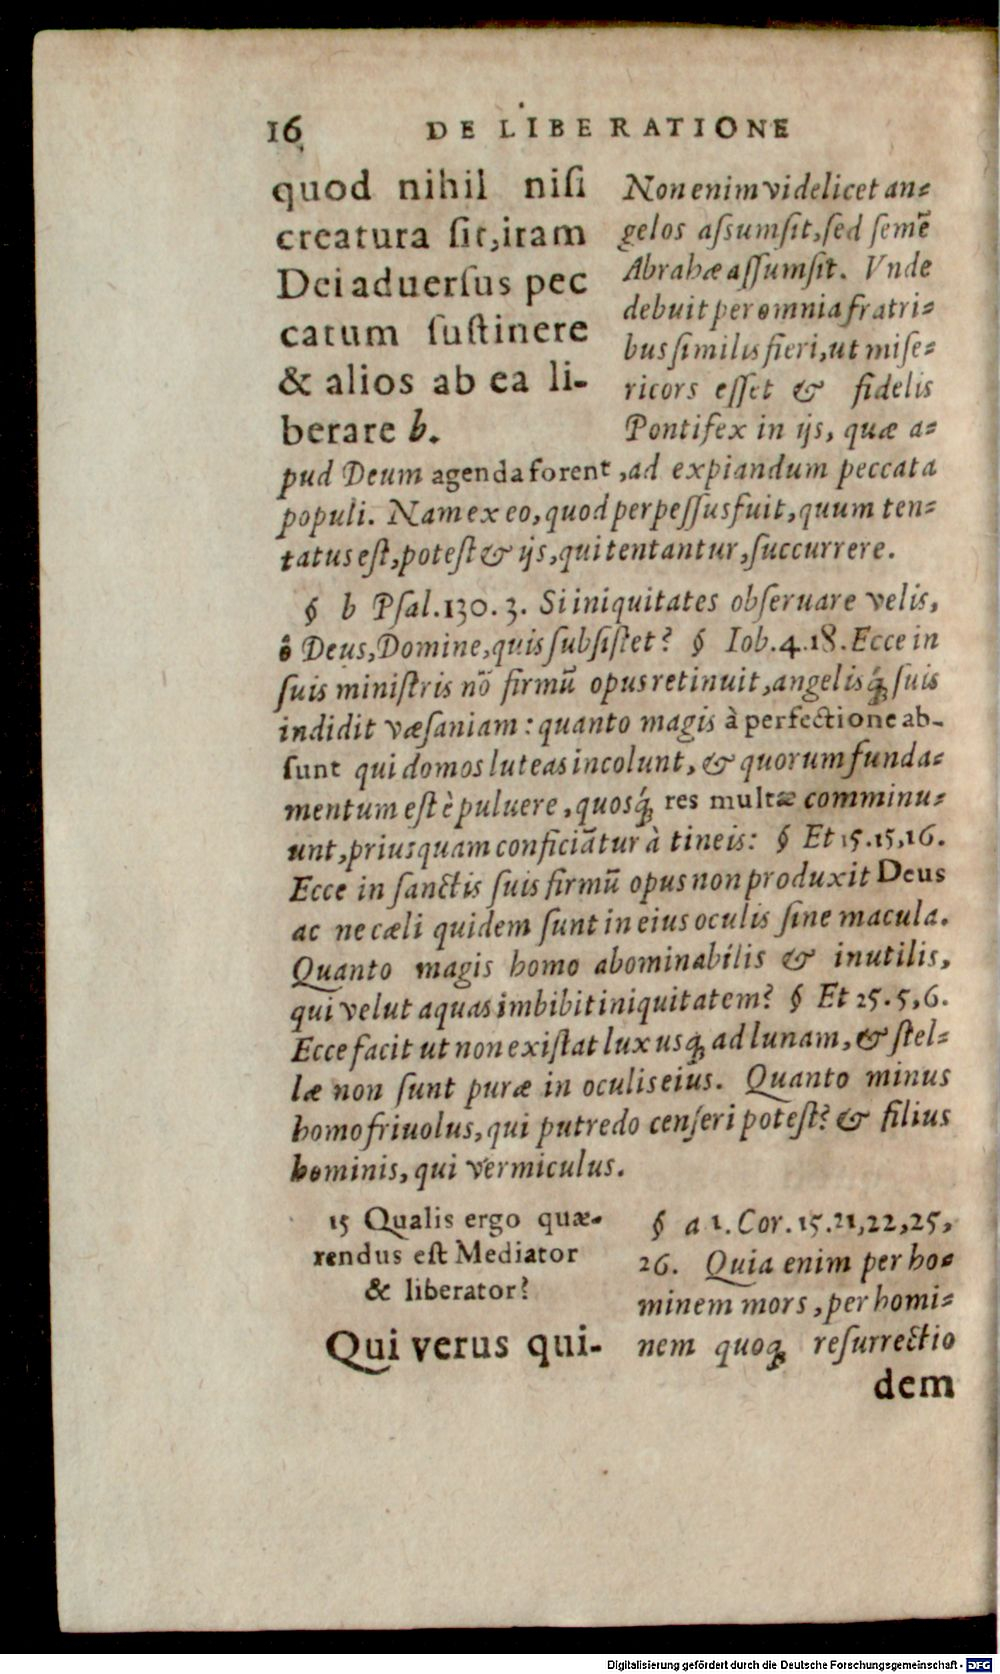 16 DE LIBERATIONE
quod nihil niſi
creatura ſit,iram
Dei aduerſus pec
catum ſuſtinere
& alios ab ea li-
berare b.
Non enim videlicet an-
gelos aſsumſit,ſed ſemē
Abrahæ aſſumſit. Vnde
debuit per omnia fratri-
bus ſimilis fieri,ut miſe-
ricors eſſet & fidelis
Pontifex in ijs, quæ a-
pud Deum agenda forent ,ad expiandum peccata
populi. Nam ex eo,quod perpeſſus fuit,quum ten-
tatus eſt,poteſt & ijs,qui tentantur,ſuccurrere.
§ b Pſal.130.3. Si iniquitates obſeruare velis,
ô Deus,Domine,quis ſubſiſtet? § Iob.4.18.Ecce in
ſuis miniſtris nō firmū opus retinuit,angelisq́; ſuis
indidit væſaniam: quanto magis à perfectione ab-
ſunt qui domos luteas incolunt, & quorum funda-
mentum eſt è puluere, quosq́; res multæ comminu-
unt,priusquam conficiātur à tineis: § Et 15.15,16.
Ecce in ſanctis ſuis firmū opus non produxit Deus
ac ne cæli quidem ſunt in eius oculis ſine macula.
Quanto magis homo abominabilis & inutilis,
qui velut aquas imbibit iniquitatem? § Et 25.5,6.
Ecce facit ut non exiſtat lux usq; ad lunam, & ſtel-
læ non ſunt puræ in oculis eius. Quanto minus
homo friuolus,qui putredo cenſeri poteſt? & filius
hominis,qui vermiculus.
15 Qualis ergo quæ-
rendus eſt Mediator
& liberator?
Qui verus qui-
§ a 1.Cor.15.21,22,25,
26. Quia enim per ho-
minem mors ,per homi-
nem quoq; reſurrectio
dem
Digitalisierung gefördert durch die Deutsche Forschungsgemeinschaft - DFG